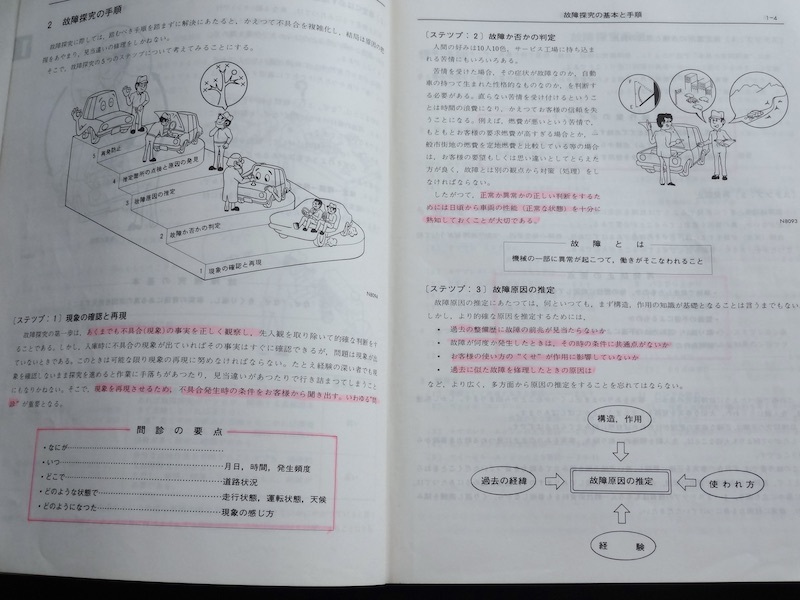 2 故障探究の手順
故障探究に際しては、踏むべき手順を踏まずに解決にあたると、かえつて不具合を複雑化し、結局は原因の究
明をあやまり、見当違いの修理をしかねない。
そこで、故障探究の5つのステップについて考えてみることにする。
5 再発防止
4 推定箇所の点検と原因の発見
3 故障原因の推定
2 故障か否かの判定
1 現象の確認と再現
〔ステップ:1〕現象の確認と再現
故障探究の第一歩は、あくまでも不具合(現象)の事実を正しく観察し、先入観を取り除いて的確な判断をす
ることである。しかし、入庫時に不具合の現象が出ていればその事実はすぐに確認できるが、問題は現象が出
ていないときである。このときは可能な限り現象の再現に努めなければならない。たとえ経験の深い者でも現
象を確認しないまま探究を進めると作業に手落ちがあつたり、見当違いがあつたりで行き詰まつてしまうこと
にもなりかねない。そこで、現象を再現させるため、不具合発生時の条件をお客様から聞き出す。いわゆる“問
診”が重要となる。
問診の要点
・なにが
・いつ 月日，時間，発生頻度
・どこで 道路状況
・どのような状態で 走行状態，運転状態，天候
・どのようになつた 現象の感じ方
故障探究の基本と手順
1-4
〔ステツプ：2〕故障か否かの判定
人間の好みは10人10色、サービス工場に持ち込ま
れる苦情にもいろいろある。
苦情を受けた場合、その症状が故障なのか、自動
車の持つて生まれた性格的なものなのか、を判断す
る必要がある。直らない苦情を受け付けるというこ
とは時間の浪費になり、かえつてお客様の信頼を失
うことになる。例えば、燃費が悪いという苦情で、
もともとお客様の要求燃費が高すぎる場合とか、一
般市街地の燃費を定地燃費と比較している等の場合
は、お客様の要望もしくは思い違いとしてとらえた方
が良く、故障とは別の観点から対策(処理)を
しなければならない。
したがつて、正常か異常かの正しい判断をするた
めには日頃から車両の性能(正常な状態)を十分に
熟知しておくことが大切である。
N8093
故障とは
機械の一部に異常が起こつて，働きがそこなわれること
〔ステツプ：3〕故障原因の推定
故障原因の推定にあたつては、何といつても、まず構造、作用の知識が基礎となることは言うまでもない。
しかし、より的確な原因を推定するためには、
・過去の整備歴に故障の前兆が見当たらないか
・故障が何度か発生したときは、その時の条件に共通点がないか
・お客様の使い方の“くせ”が作用に影響していないか
・過去に似た故障を修理したときの原因は
など、より広く、多方面から原因の推定をすることを忘れてはならない。
構造，作用
過去の経緯
故障原因の推定
使われ方
経験